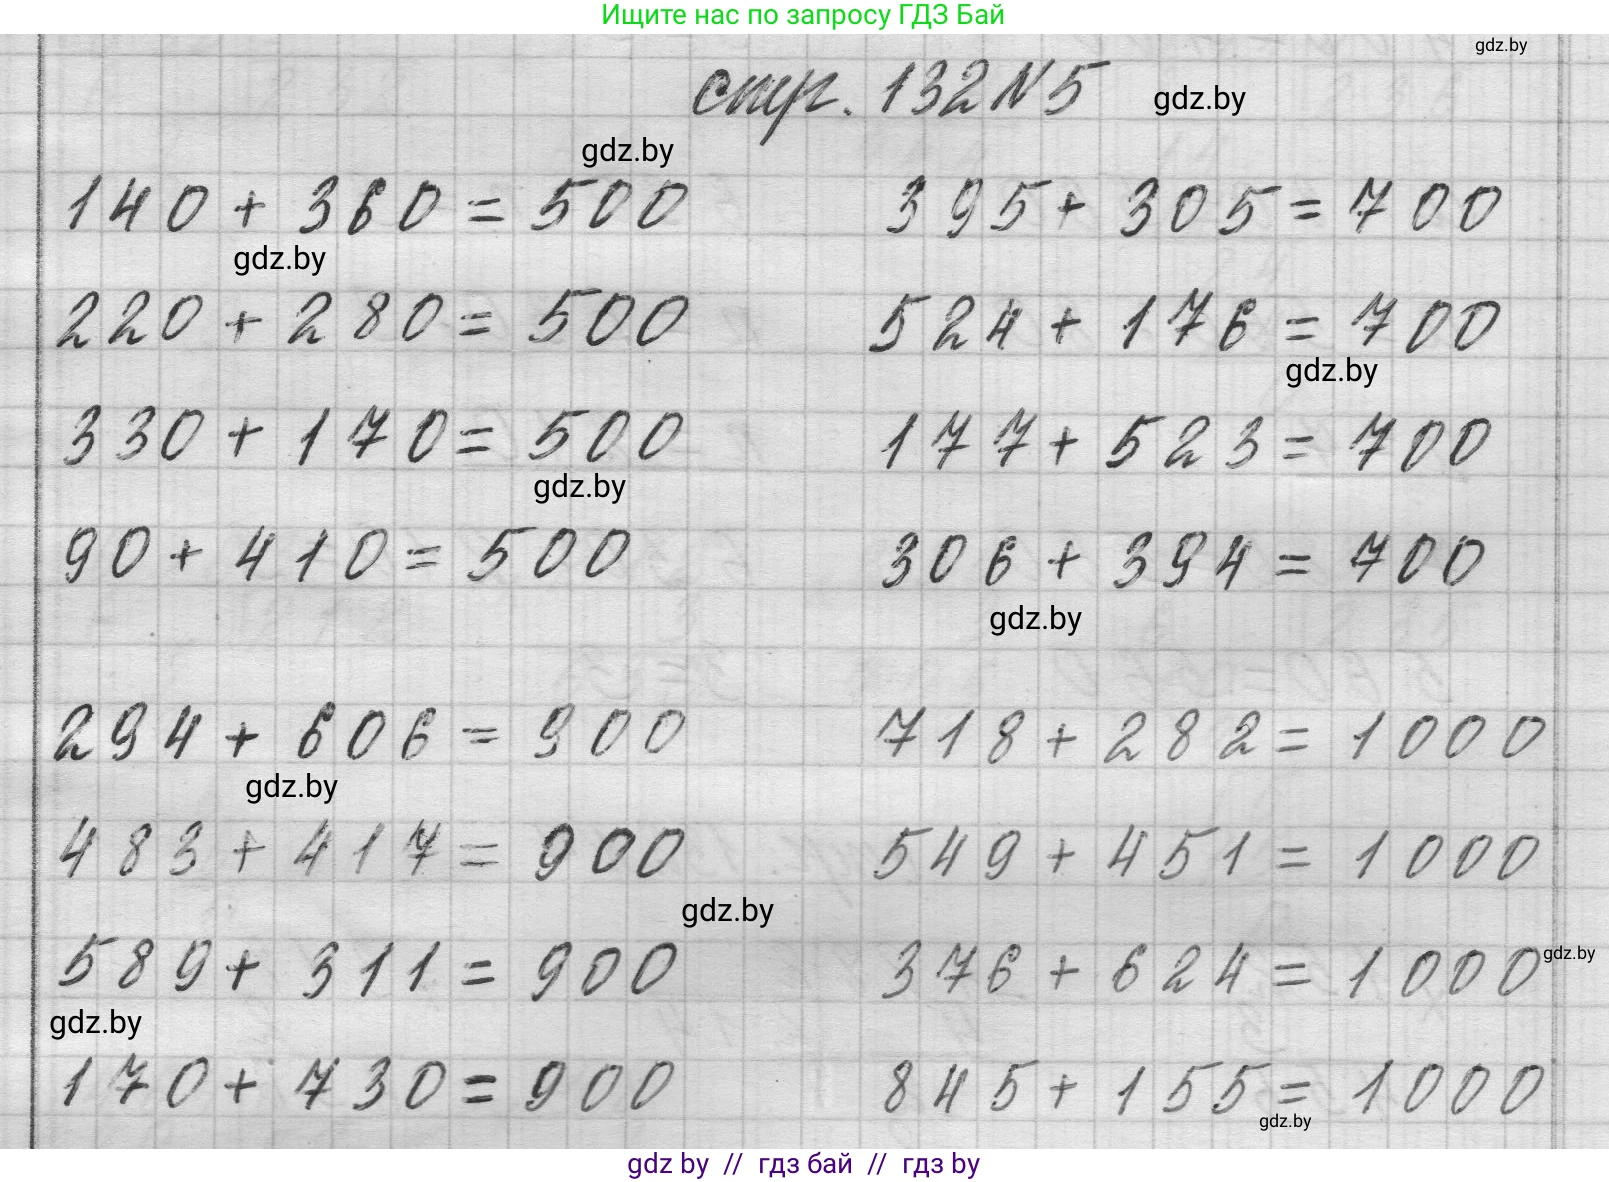 Ищите нас по запросу ГДЗ Бай
gdz.by
стр. 132 N 5
gdz.by
gdz.by
140 + 360 = 500
395 + 305 = 700
gdz.by
220 + 280 = 500
524 + 176 = 700
gdz.by
330 + 170 = 500
177 + 523 = 700
gdz.by
90 + 410 = 500
306 + 394 = 700
gdz.by
294 + 606 = 900
718 + 282 = 1000
gdz.by
483 + 417 = 900
549 + 451 = 1000
gdz.by
589 + 311 = 900
376 + 624 = 1000
gdz.by
gdz.by
170 + 730 = 900
845 + 155 = 1000
gdz.by
gdz by // гдз бай // гдз by